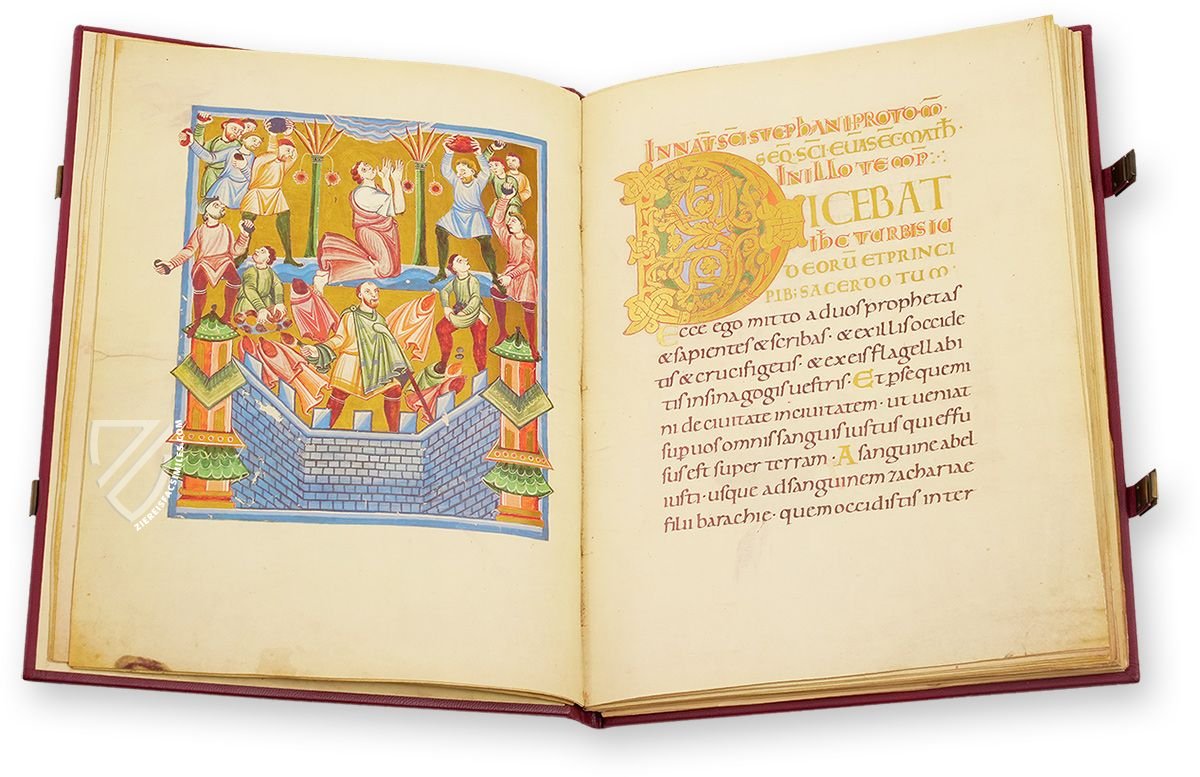 ZIEREISFACSIMILES.COM
INNAT̄ SC̄I STEPHANI PROTOM̄·
SEQ̄· SC̄I· EVĀ· SEC̄· MATH̄·
INILLO TEMP̄·
DICEBAT
IH̄C TURBIS IU
DEORU ET PRINCI
PIB; SACERDOTUM·
Ecce ego mitto ad uos prophetas
& sapientes & scribas· & ex illis occide
tis & crucifigetis· & ex eis flagellabi
tis in sinagogis uestris· Et psequemi
ni de ciuitate in ciuitatem· ut ueniat
sup uos omnis sanguis iustus qui effu
sus est super terram· A sanguine abel
iusti· usque ad sanguinem zachariae
filii barachie· quem occidistis inter